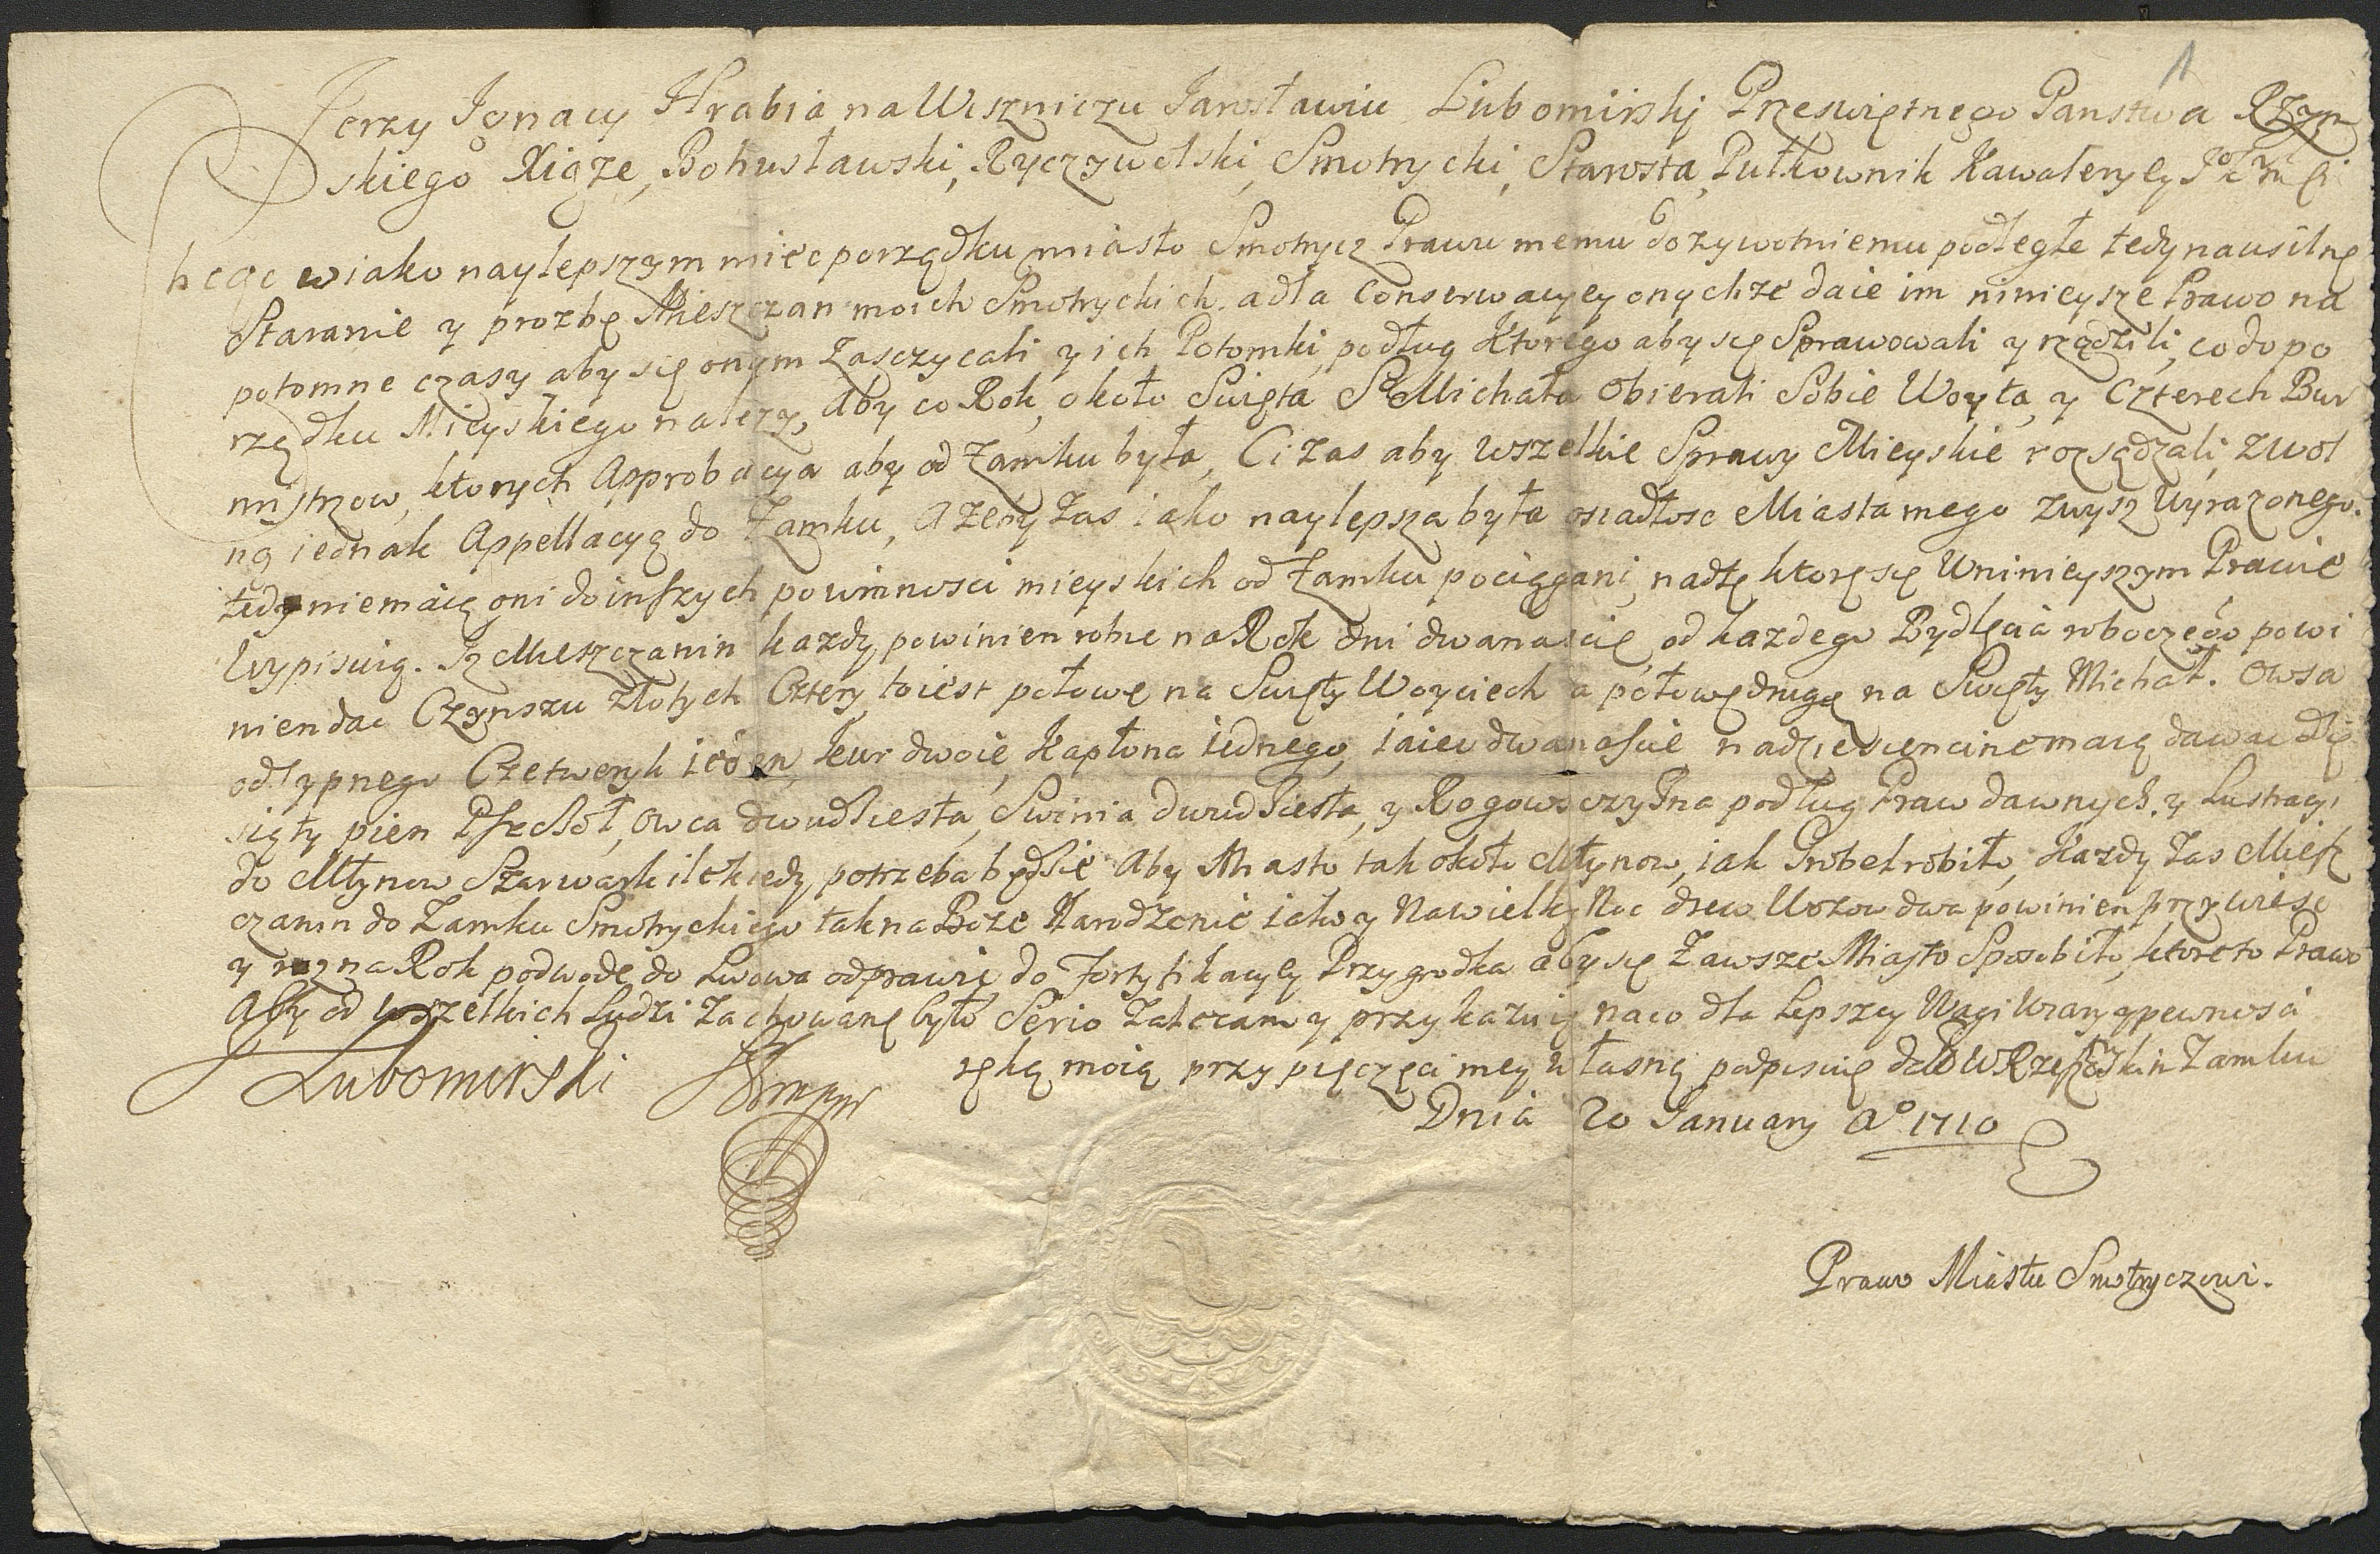 1
Jerzy Ignacy Hrabia na Wiszniczu Jarosławiu Lubomirskj Przeswiętnego Panstwa Rzym
skiego Xiąze, Bohusławski, Ryczywolski, Smotrycki, Starosta, Pułkownik Kawaleryey
hcąc w iako naylepszym miec porządku miasto Smotrycz Prawu memu dozywotniemu podległe tedy na usilne
Staranie y prozbę Mieszczan moich Smotryckich. a dla Conserwacyey onychze daie im ninieysze Prawo na
potomne czasy aby się onym Zasczycali y ich Potomki, podług Ktorego aby się Sprawowali y rządzili, co do po
rządku Mieyskiego nalezy, Aby co Rok około Swięta S Michała Obierali Sobie Woyta, y Czterech Bur
mistrzow, ktorych Approbacya aby od Zamku była, Ci zas aby wszelkie Sprawy Mieyskie rozsądzali, zwol
ną iednak Appellacyą do Zamku, A zeby Zas iako naylepsza była osiadłosc Miasta mego zwysz wyrazonego.
tedy nie maią oni do inszych powinnosci mieyskich od Zamku pociągani, nad te ktore się w ninieyszym Prawie
Wypisuią. Iz Mieszczanin kazdy powinien robic na Rok dni dwanascie, od kazdego Bydlęcia roboczego powi
nien dac Czynszu złotych Cztery, to iest połowę na Swięty Woyciech a połowę drugę na Swięty Michał. Owsa
odsypnego Czetweryk ieden, kur dwoie, Kapłona iednego, iaiec dwanascie, na dziesiencine maią dawac Dzie
siąty pien Pszchoł, owca dwudziesta, Swinia dwudziesta, y Rogowszczyzna podług Praw dawnych, y Lustracyi
do Młynow Szarwark ilekiedy potrzeba będzie Aby Miasto tak około Młynow, iak Grobel robiło, Kazdy zas Miesz
czanin do Zamku Smotryckiego tak na Boze Narodzenie iako y Na wielką Noc drew Wozow dwa powinien przywiesc
y raz na Rok podwodę do Lwowa odprawic do Fortyfikacyey Przygrodka aby się Zawsze Miasto Sposobiło, ktore to Prawo
Aby od wszelkich Ludzi Zachowane było Serio Zalecam y przykazuię na co dla Lepszey Wagi Wiary y pewnosci
ręką moią przy pięczęci mey własną podpisuię w Zamku
Lubomirski
Dnia 20 January Aº 1710
Prawo Miastu Smotryczowi.